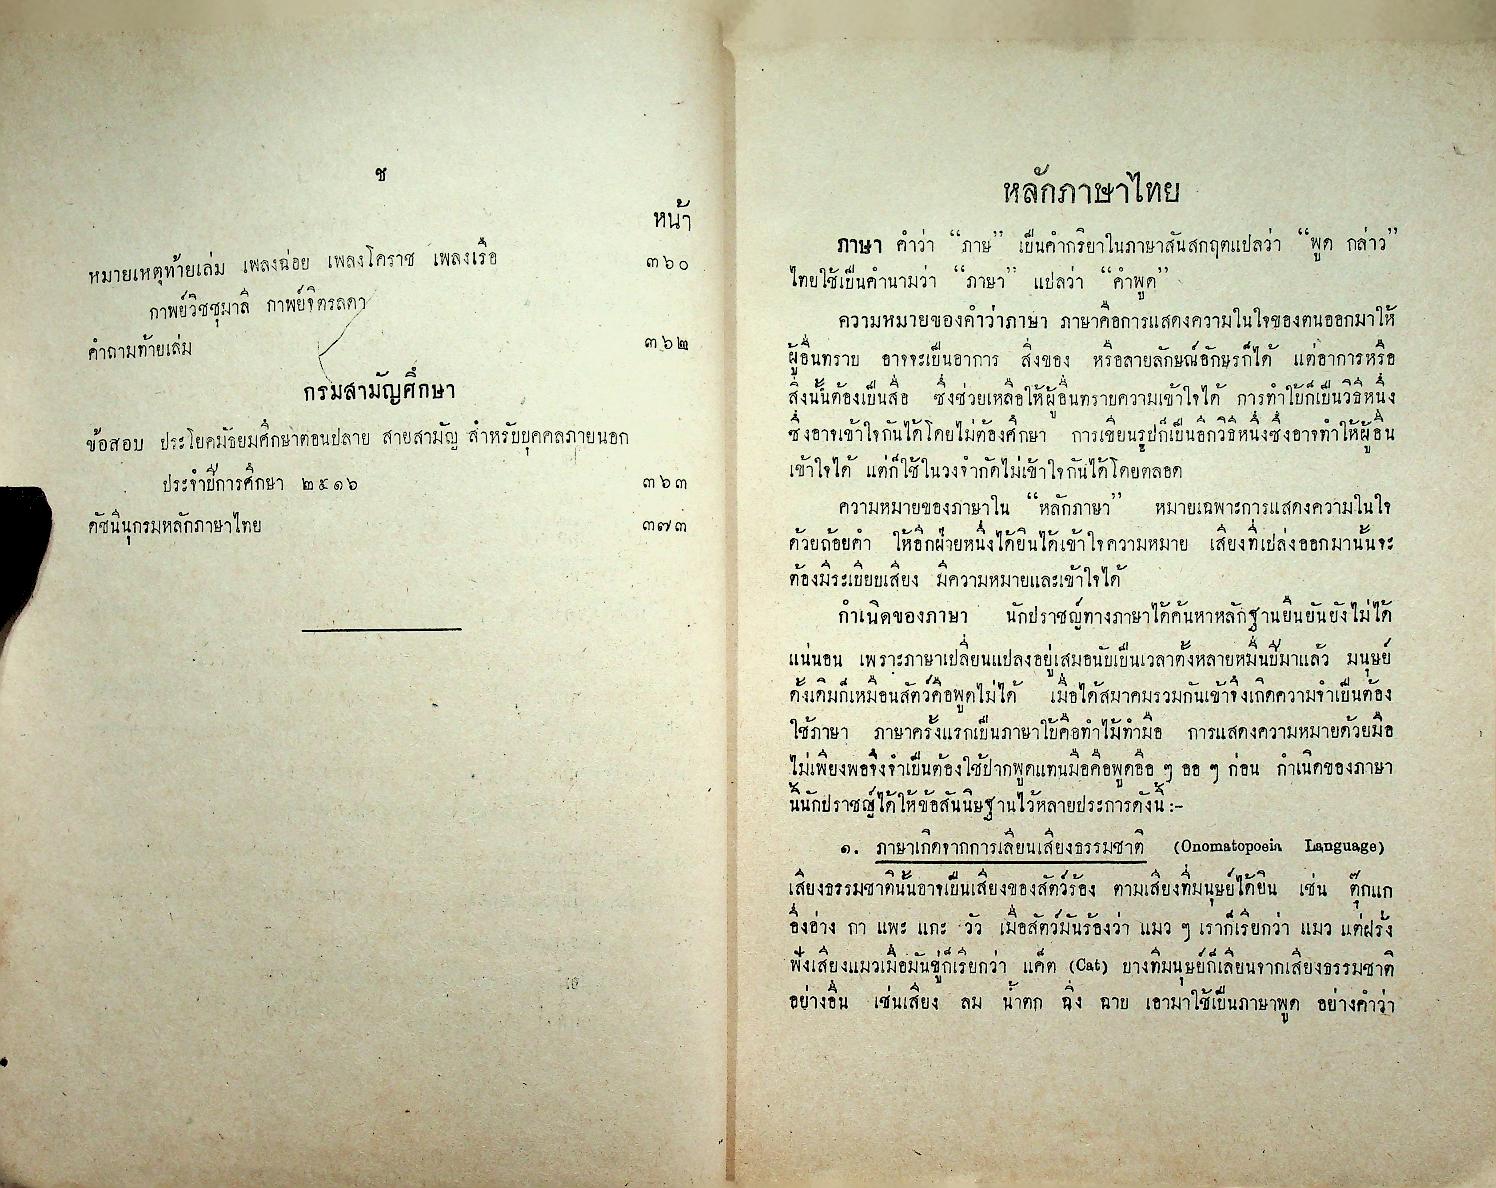 ช
หน้า
หมายเหตุท้ายเล่ม เพลงฉ่อย เพลงโคราช เพลงเรือ ๓๖๐
กาพย์วิชชุมาลี กาพย์จิตรลดา
คำถามท้ายเล่ม ๓๖๒
กรมสามัญศึกษา
ข้อสอบ ประโยคมัธยมศึกษาตอนปลาย สายสามัญ สำหรับบุคคลภายนอก
ประจำปีการศึกษา ๒๕๑๖ ๓๖๓
ดัชนีนุกรมหลักภาษาไทย ๓๗๓
หลักภาษาไทย
ภาษา คำว่า “ภาษ” เป็นคำกริยาในภาษาสันสกฤตแปลว่า “พูด กล่าว”
ไทยใช้เป็นคำนามว่า “ภาษา” แปลว่า “คำพูด”
ความหมายของคำว่าภาษา ภาษาคือการแสดงความในใจของตนออกมาให้
ผู้อื่นทราบ อาจจะเป็นอาการ สิ่งของ หรือลายลักษณ์อักษรก็ได้ แต่อาการหรือ
สิ่งนั้นต้องเป็นสื่อ ซึ่งช่วยเหลือให้ผู้อื่นทราบความเข้าใจได้ การทำใบ้ก็เป็นวิธีหนึ่ง
ซึ่งอาจเข้าใจกันได้โดยไม่ต้องศึกษา การเขียนรูปก็เป็นอีกวิธีหนึ่งซึ่งอาจทำให้ผู้อื่น
เข้าใจได้ แต่ก็ใช้ในวงจำกัดไม่เข้าใจกันได้โดยตลอด
ความหมายของภาษาใน “หลักภาษา” หมายเฉพาะการแสดงความในใจ
ด้วยถ้อยคำ ให้อีกฝ่ายหนึ่งได้ยินได้เข้าใจความหมาย เสียงที่เปล่งออกมานั้นจะ
ต้องมีระเบียบเสียง มีความหมายและเข้าใจได้
กำเนิดของภาษา นักปราชญ์ทางภาษาได้ค้นหาหลักฐานยืนยันยังไม่ได้
แน่นอน เพราะภาษาเปลี่ยนแปลงอยู่เสมอนับเป็นเวลาตั้งหลายหมื่นปีมาแล้ว มนุษย์
ดั้งเดิมก็เหมือนสัตว์คือพูดไม่ได้ เมื่อได้สมาคมรวมกันเข้าจึงเกิดความจำเป็นต้อง
ใช้ภาษา ภาษาครั้งแรกเป็นภาษาใบ้คือทำไม้ทำมือ การแสดงความหมายด้วยมือ
ไม่เพียงพอจึงจำเป็นต้องใช้ปากพูดแทนมือคือพูดอือ ๆ ออ ๆ ก่อน กำเนิดของภาษา
นี้นักปราชญ์ได้ให้ข้อสันนิษฐานไว้หลายประการดังนี้ :–
๑. ภาษาเกิดจากการเลียนเสียงธรรมชาติ (Onomatopoein Language)
เสียงธรรมชาตินั้นอาจเป็นเสียงของสัตว์ร้อง ตามเสียงที่มนุษย์ได้ยิน เช่น ตุ๊กแก
อึ่งอ่าง กา แพะ แกะ วัว เมื่อสัตว์มันร้องว่า แมว ๆ เราก็เรียกว่า แมว แต่ฝรั่ง
ฟังเสียงแมวเมื่อมันขู่ก็เรียกว่า แค็ต (Cat) บางทีมนุษย์ก็เลียนจากเสียงธรรมชาติ
อย่างอื่น เช่นเสียง ลม น้ำตก ฉิ่ง ฉาบ เอามาใช้เป็นภาษาพูด อย่างคำว่า